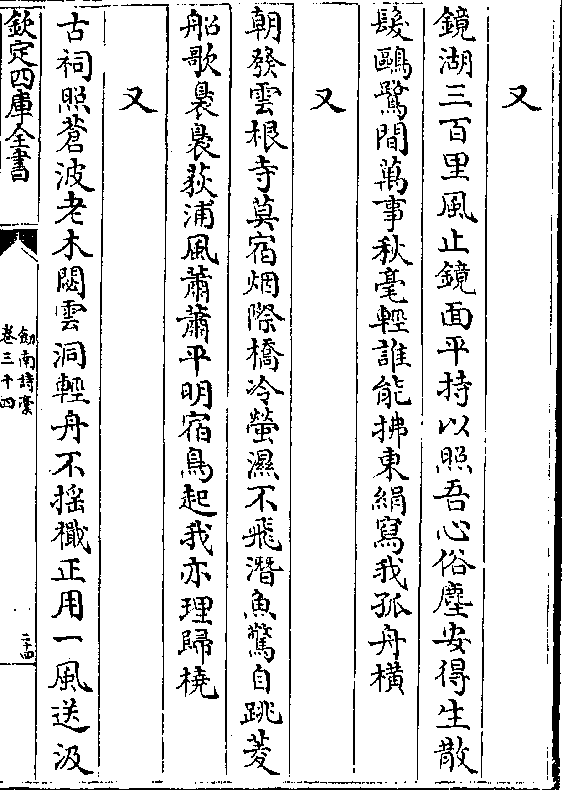 又
鏡湖三百里風止鏡面平持以照吾心俗塵安得生散
髮鷗鷺間萬事秋毫輕誰能拂東絹寫我孤舟橫
又
朝發雲根寺莫宿烟際橋冷螢濕不飛潛魚驚自跳菱
船歌裊裊荻浦風蕭蕭平明宿鳥起我亦理歸橈
又
古祠照蒼波老木閟雲洞輕舟不揺檝正用一風送汲
欽定四庫全書
劎南詩藁
卷三十四
二十四